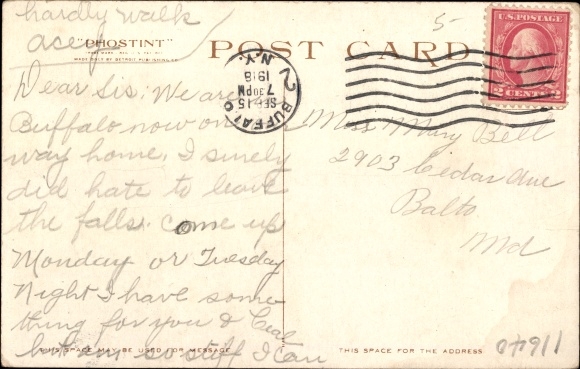 hardly walk
acey
"PHOSTINT"
MADE ONLY BY DETROIT PUBLISHING CO.
POST CARD
5-
U.S. POSTAGE
2 CENTS 2
BUFFALO
N.Y.
2
SEP 15
7 30PM
1918
Dear Sis; We are in
Buffalo now on
way home. I surely
did hate to leave
the falls. Come up
Monday or Tuesday
Night I have some-
thing for you &
but am so stiff I can
Miss Mary Bell
2903 Cedar Ave
Balto.
Md
THIS SPACE MAY BE USED FOR MESSAGE
THIS SPACE IS FOR THE ADDRESS
11640